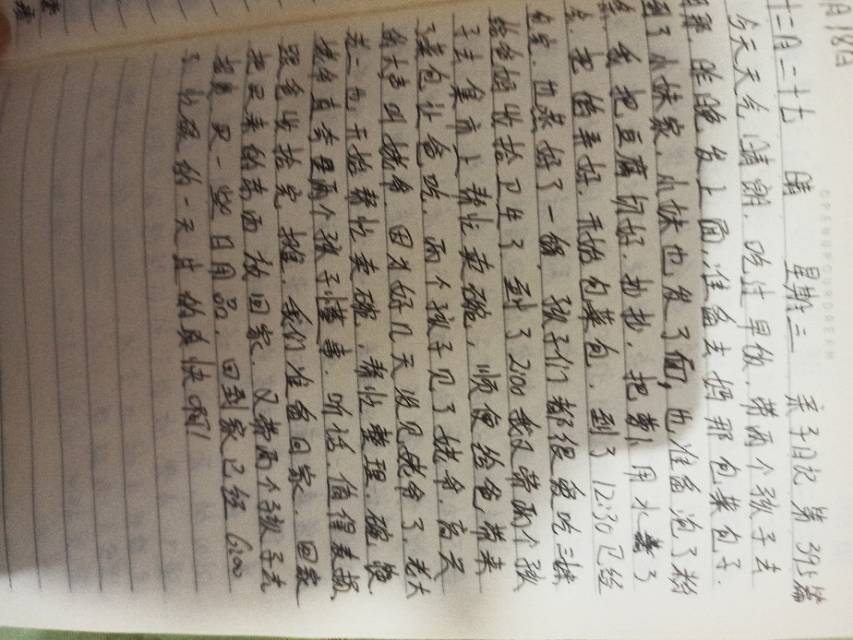 月18日
十二月二十七 晴 星期二 亲子日记 第 篇
今天天气晴朗，吃过早饭，带两个孩子去
昨晚发上面，准备去妈那包菜包子.
到了小妹家，小妹也发了面，也准备泡了粉
条，我把豆腐切好，炒炒，把 用水煮了
煮，把馅弄好，开始包菜包，到了12:30已经
包完，也蒸好了一锅，孩子们都很爱吃，三妹
给爸妈收拾卫生了，到了2:00我又带两个孩
子去集市上帮忙卖碗，顺便给爸带来
了菜包让爸吃，两个孩子见了姥爷，高兴
的大声叫姥爷，因为好几天没见姥爷了，老大
老二也开始帮忙卖碗，帮忙整理碗筷，
姥爷直夸两个孩子懂事，听话，值得表扬，
跟爸收拾完摊，我们准备回家，回家
把买来的东西放回家，又带两个孩子去
超市买一些日用品，回到家已经6:00
了，忙碌的一天过的真快啊！